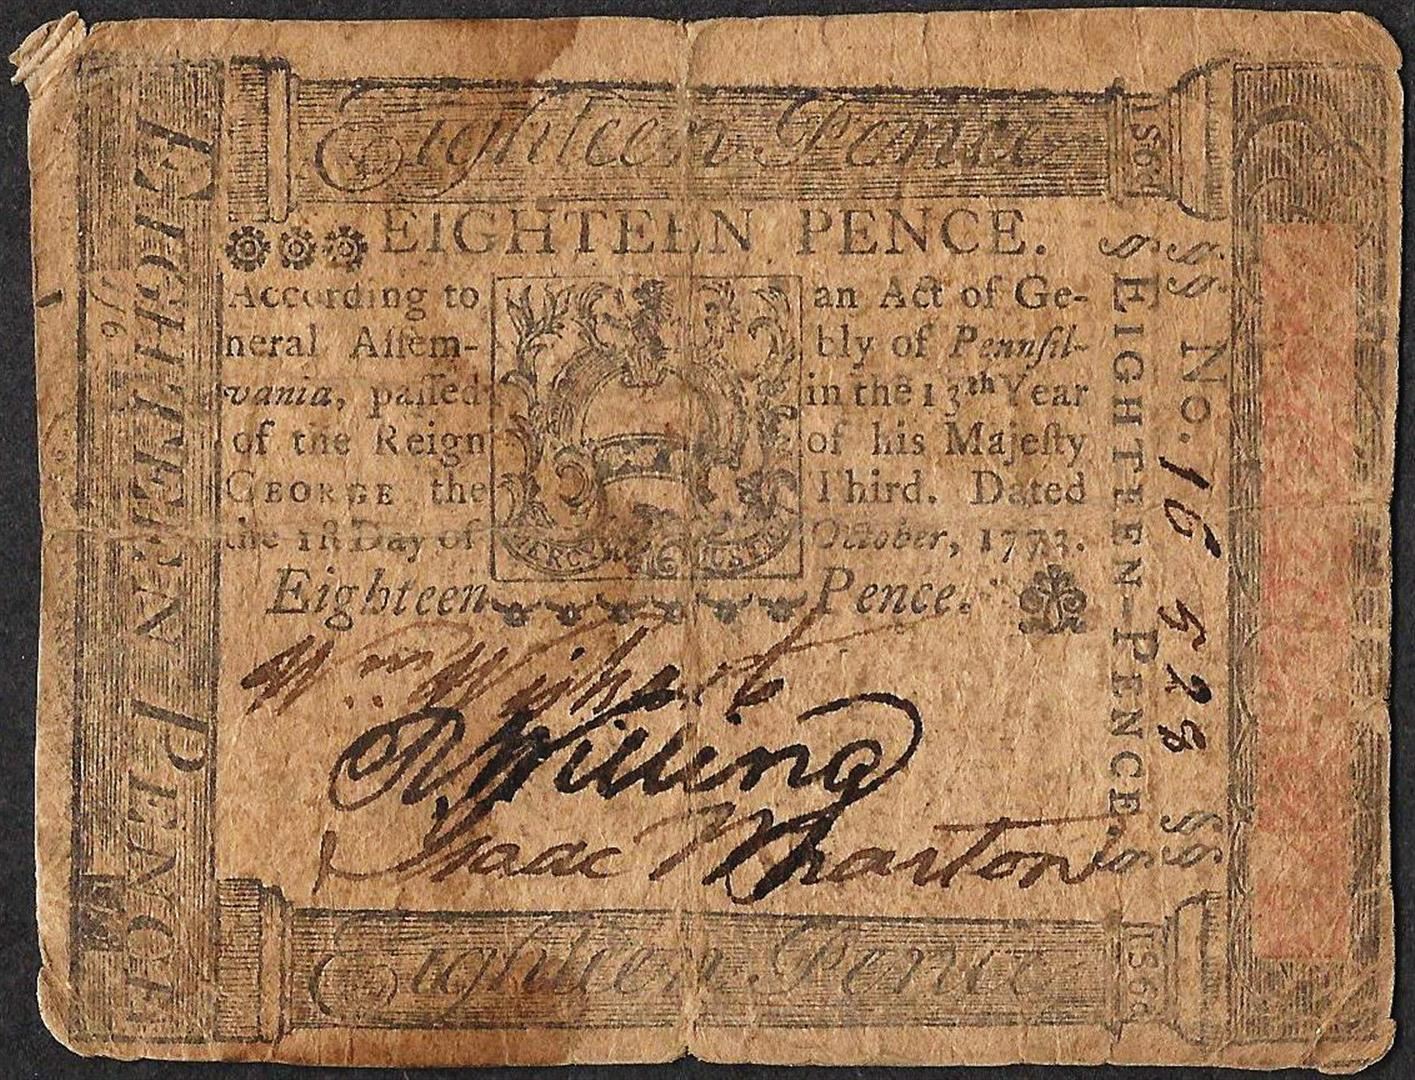 Eighteen Pence
1s6d
EIGHTEEN PENCE.
According to an Act of Ge-
neral Aſſem- bly of Pennſil-
vania, paſſed in the 13th Year
of the Reign of his Majeſty
GEORGE the Third. Dated
the 1ſt Day of October, 1773.
Eighteen Pence.
MERCY JUSTI
Wm. Wiſhart
R Willing
Isaac Wharton
Eighteen Pence
1s6d
EIGHTEEN PENCE
1/6
§ EIGHTEEN-PENCE. §
§§ No. 16528 §§